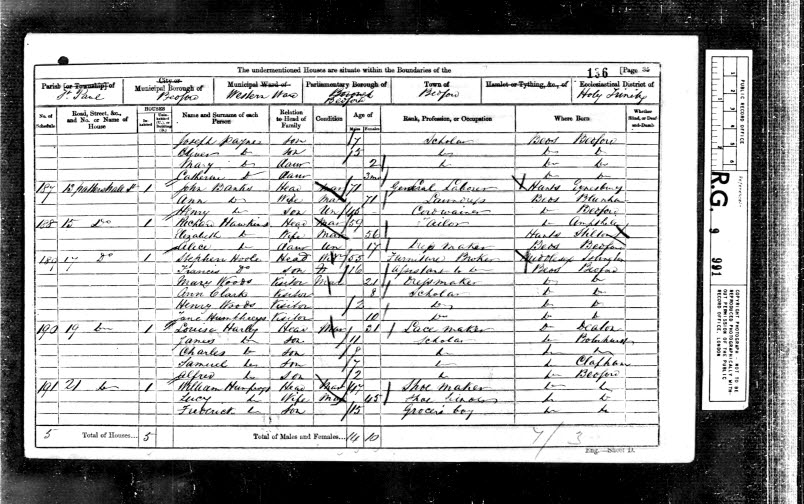 The undermentioned Houses are situate within the Boundaries of the 136 [Page 35
Parish [or Township] of St. Paul
City or Municipal Borough of Bedford
Municipal Ward of Western Ward
Parliamentary Borough of Borough Bedford
Town of Bedford
Hamlet or Tything, &c., of
Ecclesiastical District of Holy Trinity
No. of Schedule Road, Street, &c., and No. or Name of House HOUSES Inhabited Uninhabited (U.), or Building (B.) Name and Surname of each Person Relation to Head of Family Condition Age of Males Females Rank, Profession, or Occupation Where Born Whether Blind, or Deaf-and-Dumb
Joseph Son 7 Scholar Beds Bedford
Oliver Do Son 5 Do Do Do
Mary Do Daur 2 Do Do
Catherine Do Daur 3mo Do Do
187 1 John Banks Head Mar 71 General Laborer Hunts Eynesbury
Ann Do Wife Mar 71 Laundress Beds Blunham
Henry Do Son Un 46 Cordwainer Do Bedford
188 15 Do 1 Hawkins Head Mar 59 Tailor Do Ampthill
Elizabeth Do Wife Mar 56 Hunts Stilton
Alice Do Daur Un 17 Lace Maker Beds Bedford
189 17 Do 1 Stephen Hoole Head 55 Furniture Broker Middlesex Islington
Francis Do Son 16 Assistant to Do Beds Bedford
Mary Woods Visitor Mar 21 Dressmaker Do Do
Ann Clark Visitor 8 Scholar Do Do
Henry Woods Visitor 2 Do Do
Jane Humphreys Visitor 10 Do Do
190 19 Do 1 Louisa Head Mar 21 Lace Maker Do
James Do Son 11 Scholar Do Bolnhurst
Charles Do Son 8 Do Do
Samuel Do Son 7 Do Do Clapham
Alfred Do Son 2 Do Bedford
191 21 Do 1 William Humfrys Head Mar 47 Shoe Maker Do Do
Lucy Do Wife Mar 45 Shoe Binder Do Do
Frederick Do Son 15 Grocers boy Do Do
5 Total of Houses... 5 Total of Males and Females... 14 10
7/3
Eng.—Sheet D.
PUBLIC RECORD OFFICE
Reference:-
R.G. 9 991
COPYRIGHT PHOTOGRAPH - NOT TO BE REPRODUCED PHOTOGRAPHICALLY WITHOUT PERMISSION OF THE PUBLIC RECORD OFFICE, LONDON